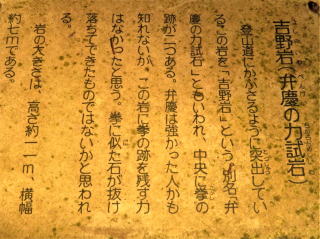 吉野岩（弁慶の力試岩）
登山道にかぶさるように突出してい
る。この岩を「吉野岩」という。別名「弁
慶の力試岩」ともいわれ、中央に拳の
跡が二つある。弁慶は強かった人かも
知れないが、この岩に拳の跡を残す力
はなかったと思う。拳に似た石が抜け
落ちてできたものではないかと思われ
る。
岩の大きさは、高さ約一一m、横幅
約七mである。